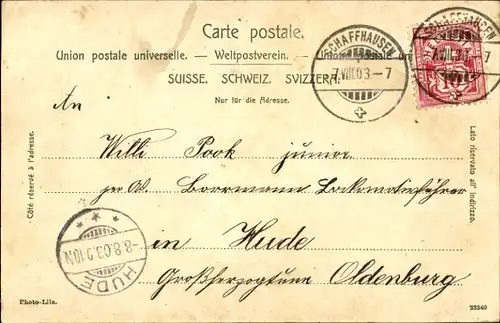 Carte postale.
Union postale universelle. — Weltpostverein. — Unione postale
SUISSE. SCHWEIZ. SVIZZERA.
Nur für die Adresse.
SCHAFFHAUSEN
7.VIII.03.–7
SCHAFFHAUSEN
–7
An
Willi Pook junior.
per Ad. Borrmann Lokomotivführer
in Hude
Großherzogtum Oldenburg
Côté réservé à l'adresse.
Lato riservato all' indirizzo.
HUDE
8.8.03.9-10N
Photo-Lila.
22340